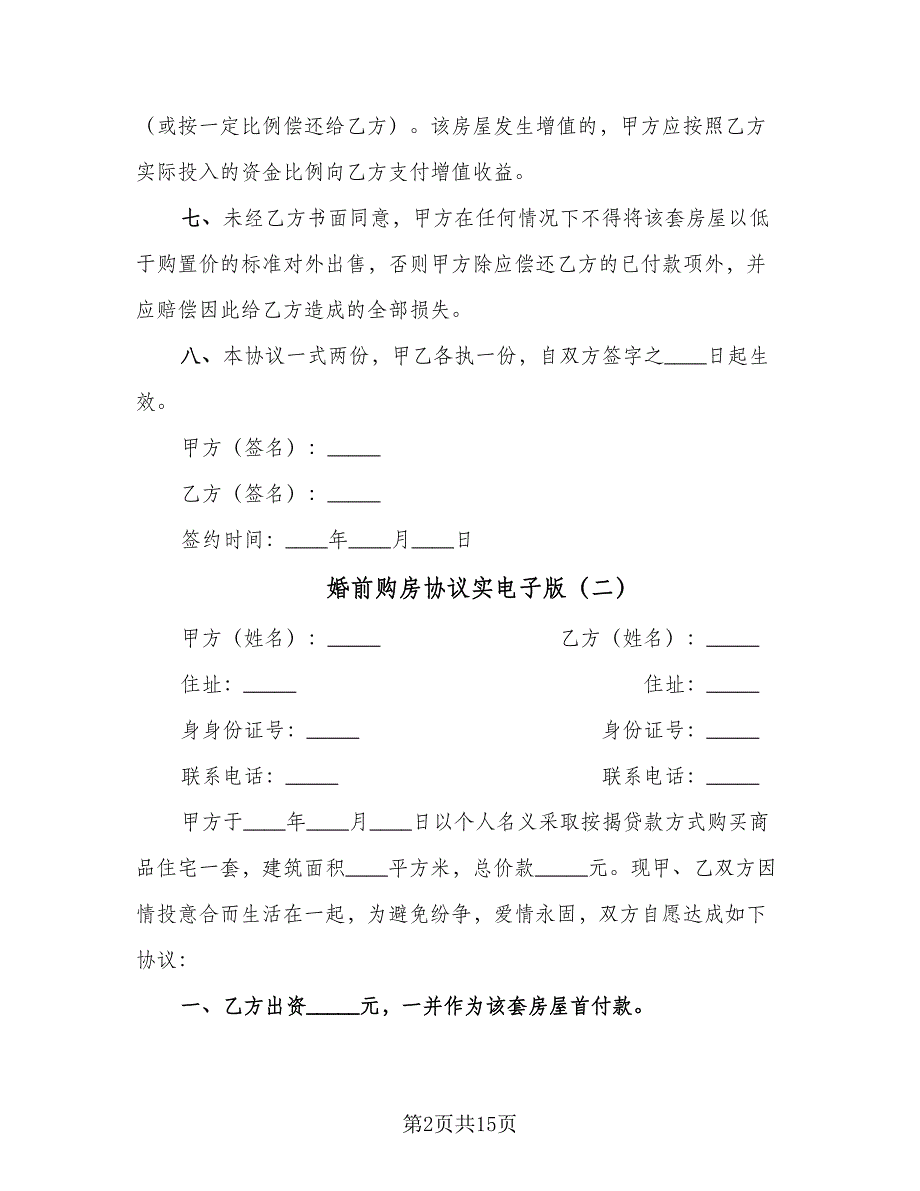 （或按一定比例偿还给乙方）。该房屋发生增值的，甲方应按照乙方
实际投入的资金比例向乙方支付增值收益。
七、未经乙方书面同意，甲方在任何情况下不得将该套房屋以低
于购置价的标准对外出售，否则甲方除应偿还乙方的已付款项外，并
应赔偿因此给乙方造成的全部损失。
八、本协议一式两份，甲乙各执一份，自双方签字之____日起生
效。
甲方（签名）：_____
乙方（签名）：_____
签约时间：____年____月____日
婚前购房协议实电子版（二）
甲方（姓名）：_____ 乙方（姓名）：_____
住址：_____ 住址：_____
身身份证号：_____ 身份证号：_____
联系电话：_____ 联系电话：_____
甲方于____年____月____日以个人名义采取按揭贷款方式购买商
品住宅一套，建筑面积____平方米，总价款_____元。现甲、乙双方因
情投意合而生活在一起，为避免纷争，爱情永固，双方自愿达成如下
协议：
一、乙方出资_____元，一并作为该套房屋首付款。
第2页共15页